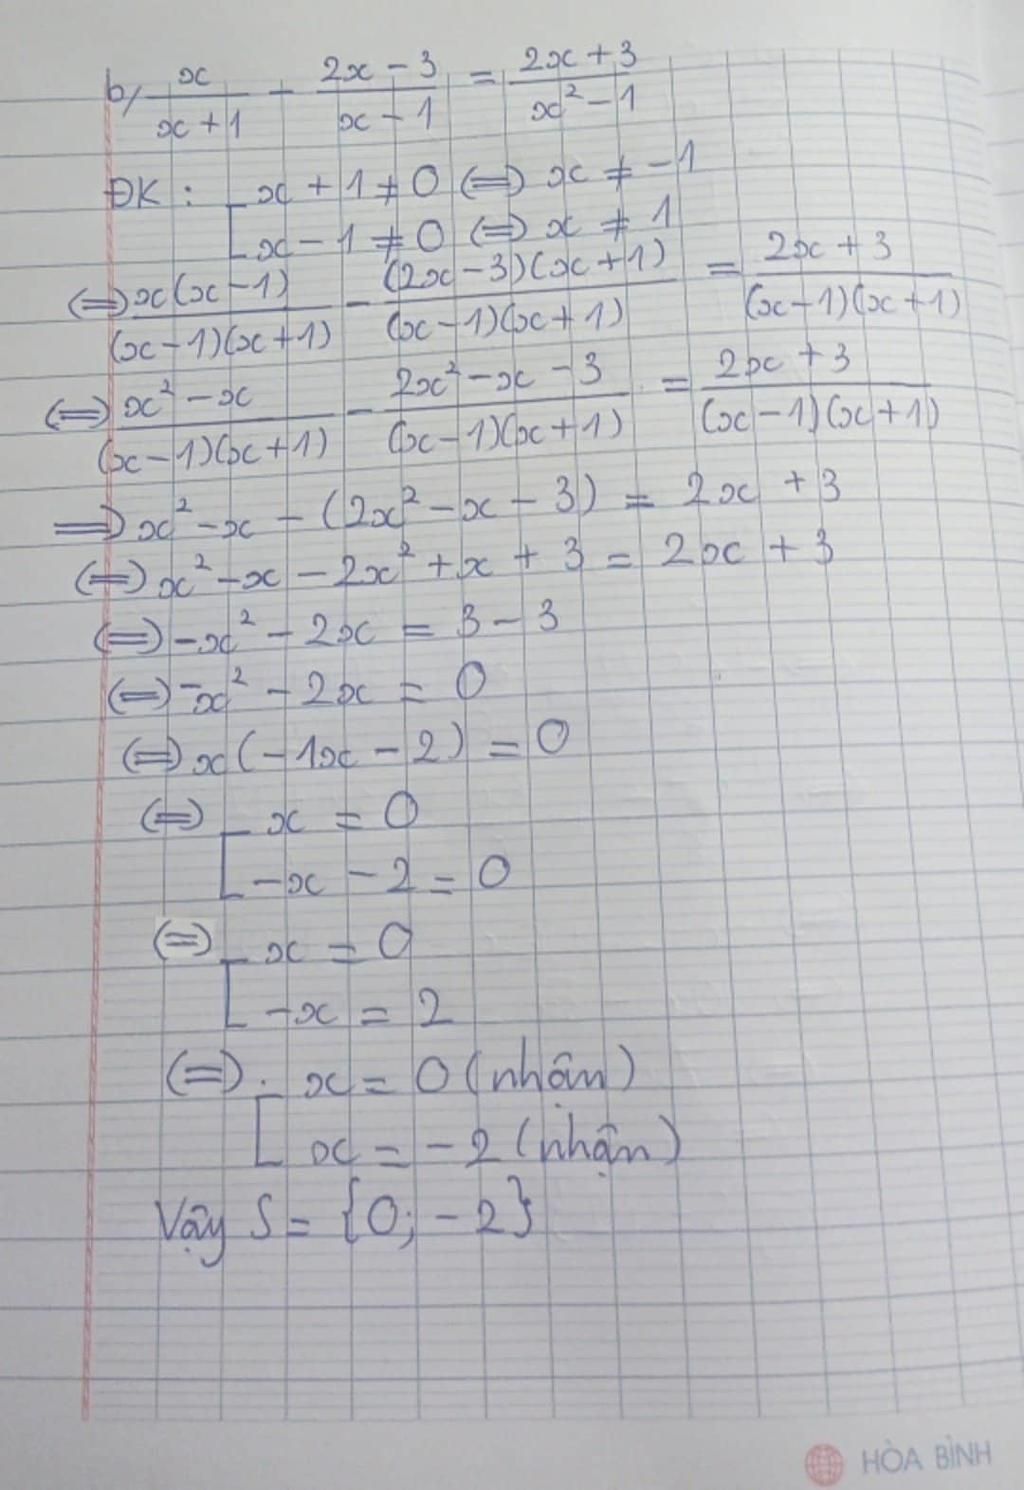 b, x/(x+1) - (2x-3)/(x-1) = (2x+3)/(x²-1)
ĐK : [ x + 1 ≠ 0 (=) x ≠ -1
x - 1 ≠ 0 (=) x ≠ 1
(=) x(x-1)/((x-1)(x+1)) - (2x-3)(x+1)/((x-1)(x+1)) = (2x+3)/((x-1)(x+1))
(=) (x²-x)/((x-1)(x+1)) - (2x²-x-3)/((x-1)(x+1)) = (2x+3)/((x-1)(x+1))
=) x² - x - (2x² - x - 3) = 2x + 3
(=) x² - x - 2x² + x + 3 = 2x + 3
(=) -x² - 2x = 3 - 3
(=) -x² - 2x = 0
(=) x(-1x - 2) = 0
(=) [ x = 0
-x - 2 = 0
(=) [ x = 0
-x = 2
(=) [ x = 0 (nhận)
x = -2 (nhận)
Vậy S = {0; -2}
HÒA BÌNH